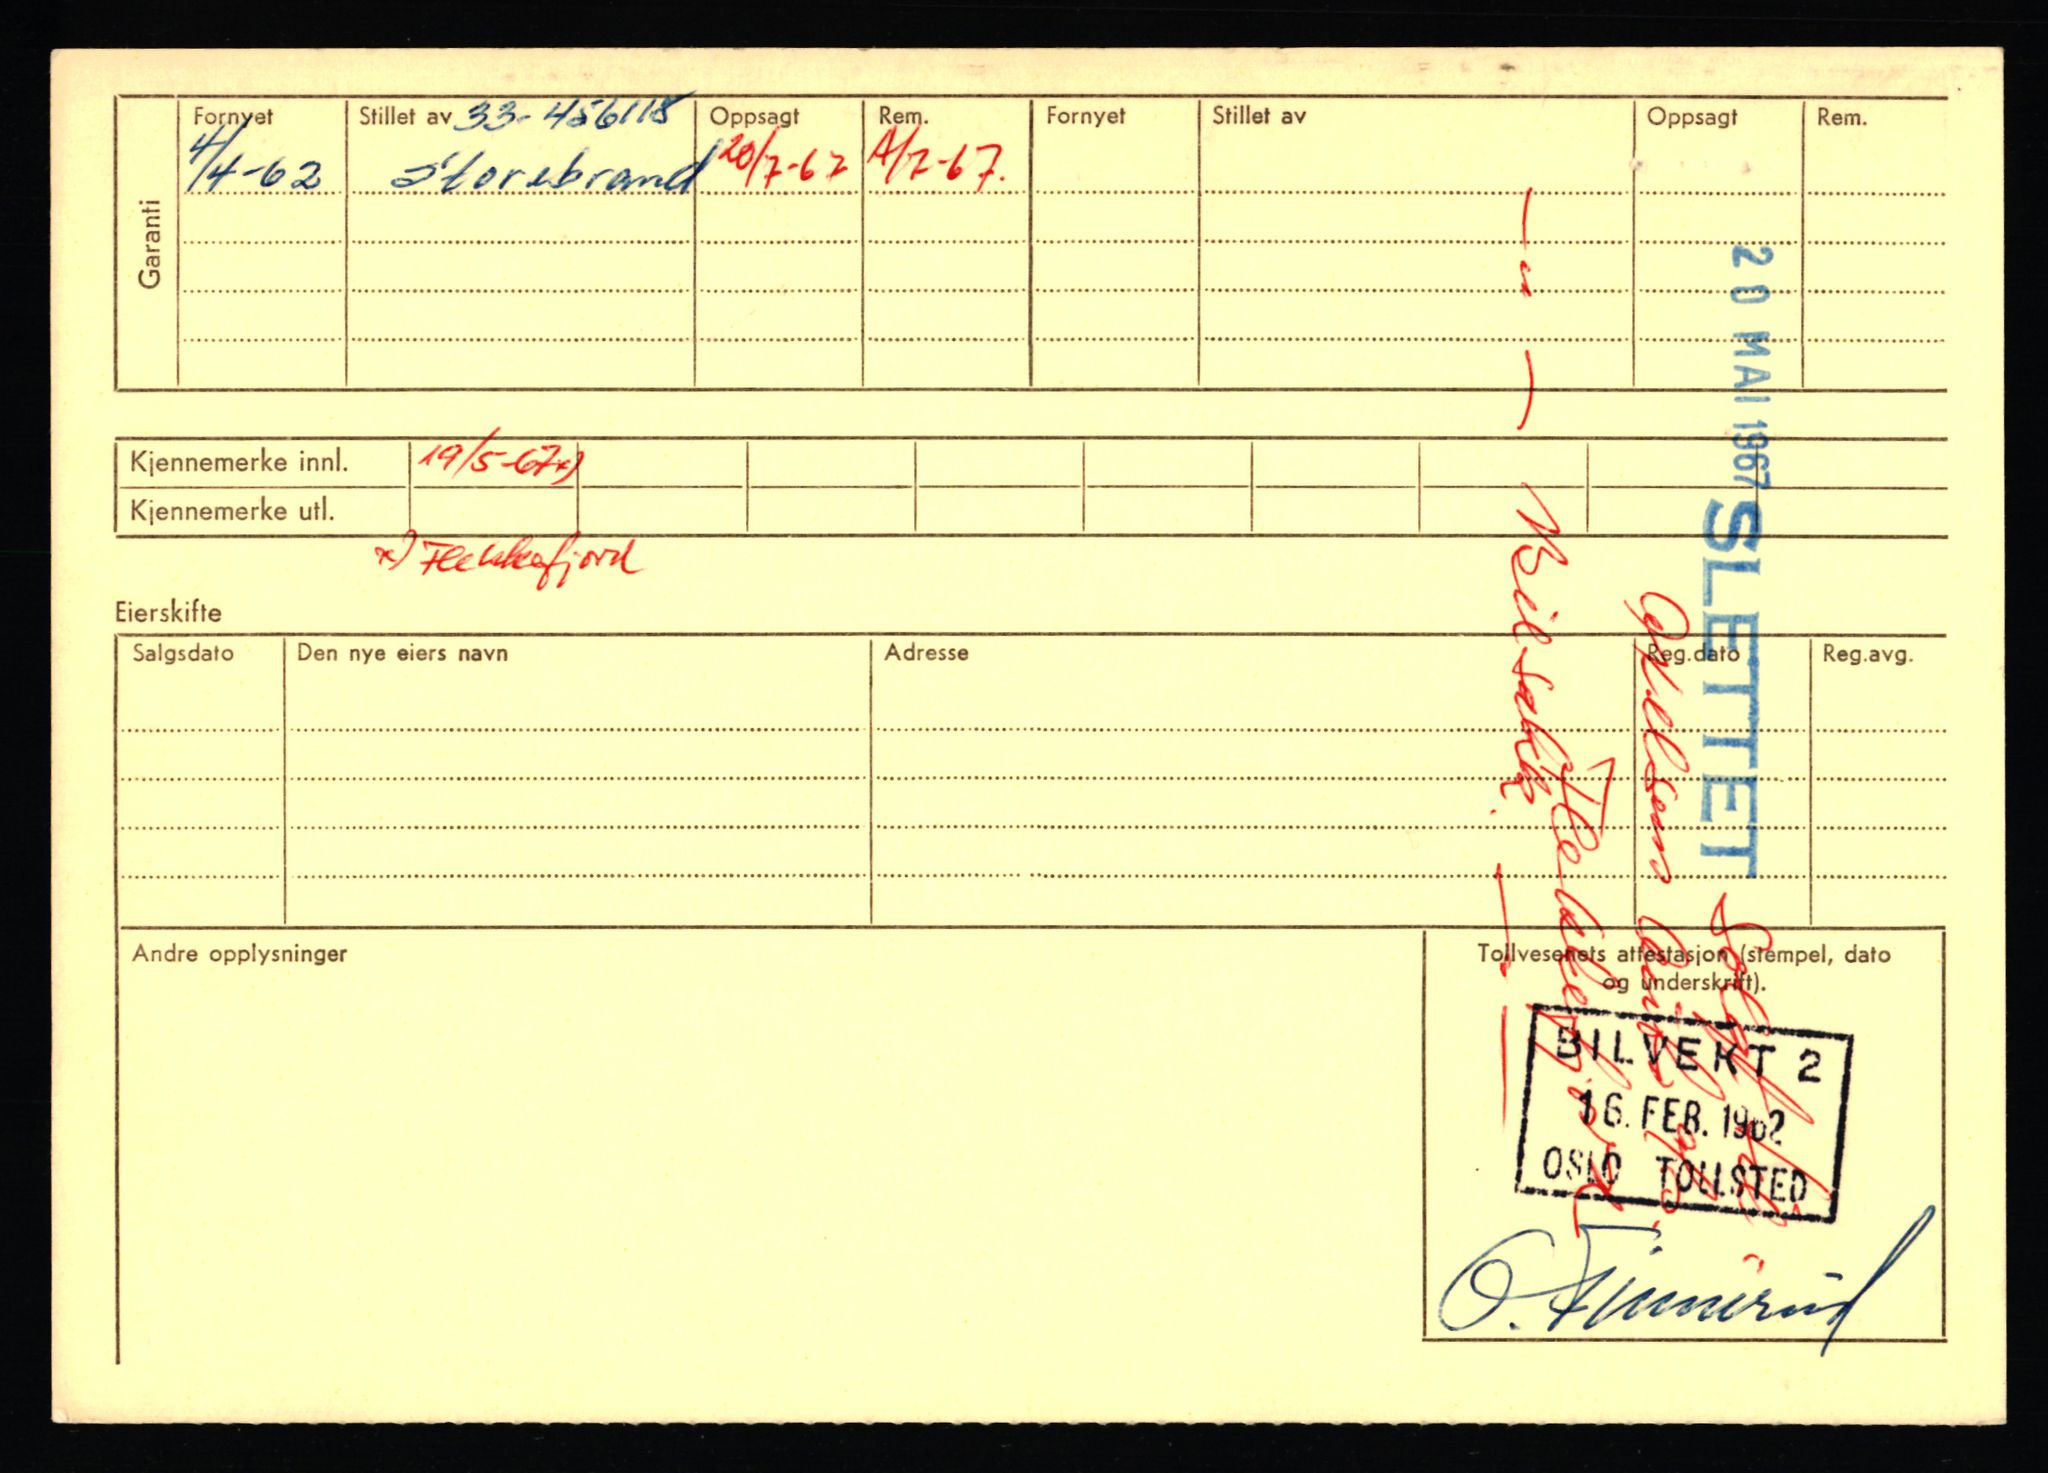 Garanti
Fornyet Stillet av 33-456118 Oppsagt Rem. Fornyet Stillet av Oppsagt Rem.
4/4-62 Storebrand 20/7-67 A/7-67.
20 MAI 1967 SLETTET
— " —
Kjennemerke innl. 19/5-67x)
Kjennemerke utl.
x) Flekkefjord
Eierskifte
Salgsdato Den nye eiers navn Adresse Reg.dato Reg.avg.
Solgt
Flekkefjord
Bilsakk.
Andre opplysninger
Tollvesenets attestasjon (stempel, dato
og underskrift).
BILVEKT 2
16. FEB. 1962
OSLO TOLLSTED